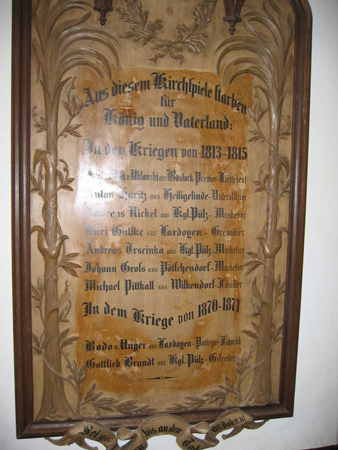 Aus diesem Kirchspiele starben
für
König und Vaterland:
In den Kriegen von 1813-1815
aus Bastock Premier-Lieutenant
Anton Haritz aus Heiligelinde-Unteroffizier
Andreas Rickel aus Kgl. Pülz-Musketier
Curt Guttke aus Lardoyen-Grenadier
Andreas Trscinka aus Kgl. Pülz-Musketier
Johann Groß aus Pötschendorf-Musketier
Michael Pittkall aus Wilkendorf-Füsilier
In dem Kriege von 1870-1871
Bodo v. Unger aus Lardoyen-Portepee Fähnrich
Gottlieb Brandt aus Kgl. Pülz-Gefreiter
bis an den